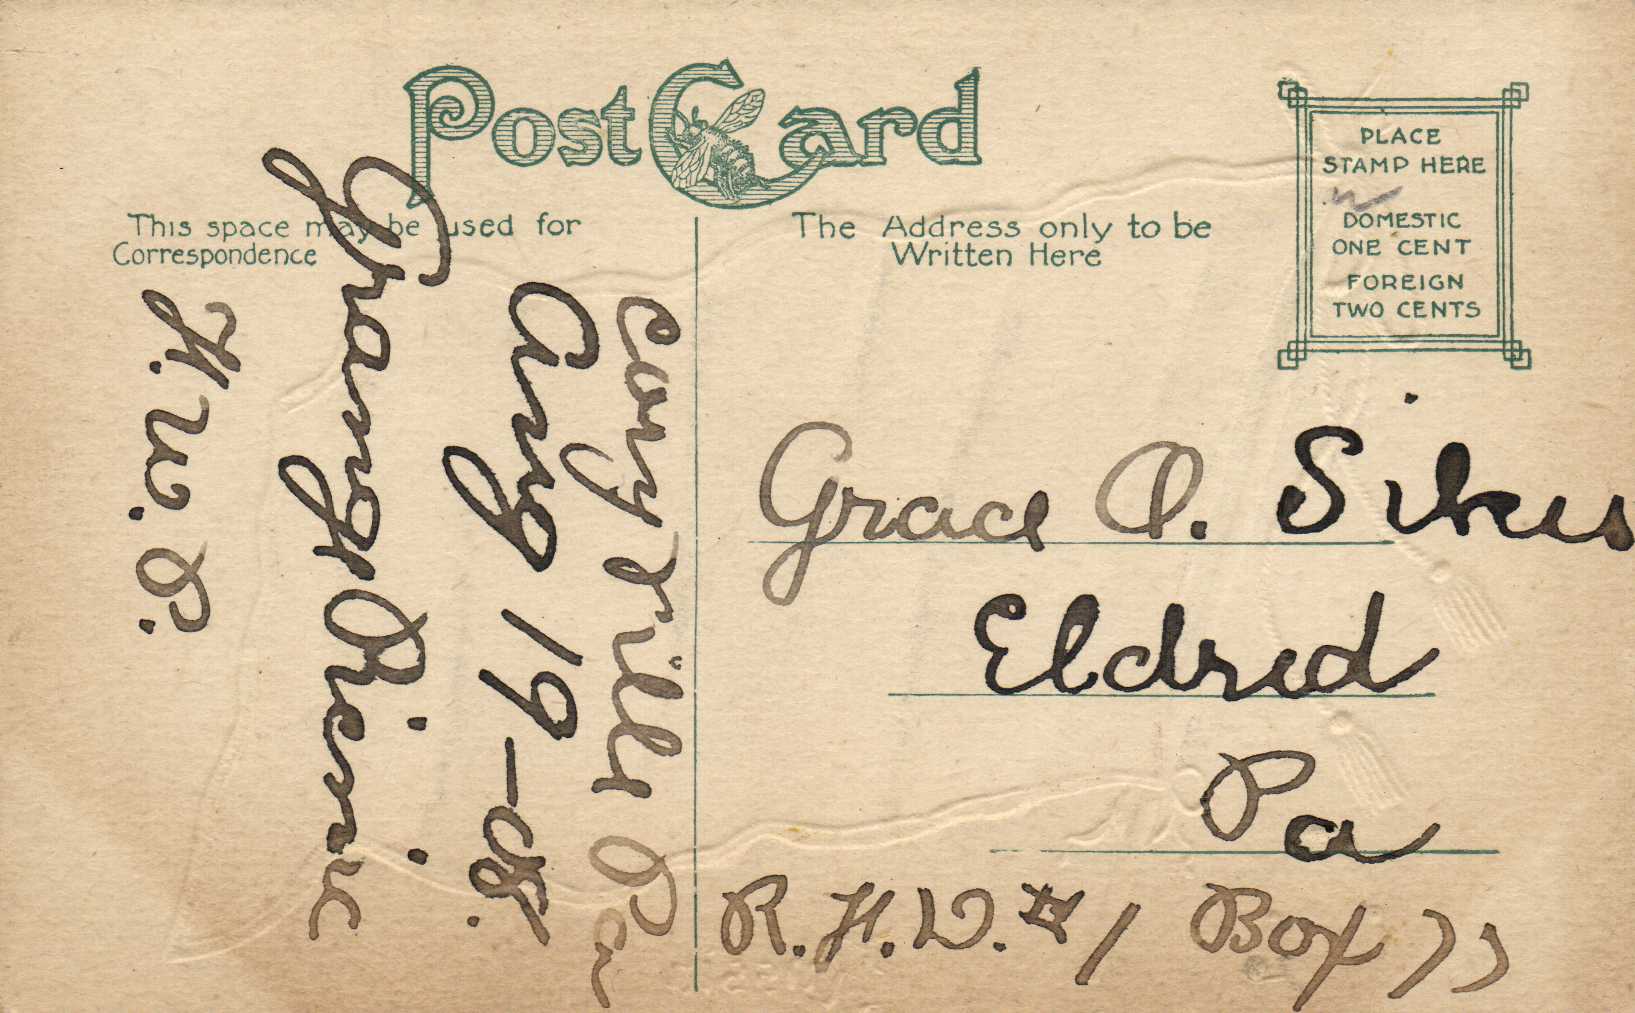 Post Card
This space may be used for
Correspondence
The Address only to be
Written Here
PLACE
STAMP HERE
DOMESTIC
ONE CENT
FOREIGN
TWO CENTS
Coryville Pa
Aug 19-08.
Grange Picnic
F. W. P.
Grace O. Sikes
Eldred
Pa
R.F.D. # 1 Box 77